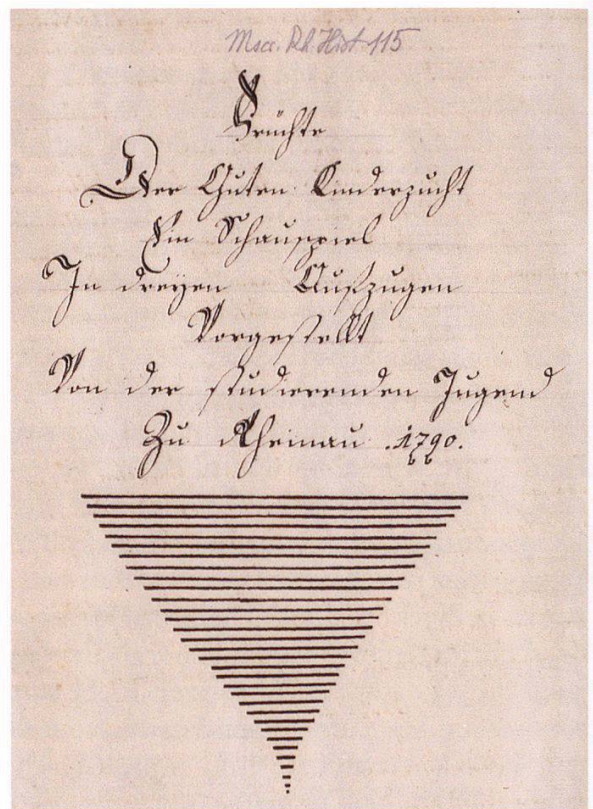 Mscr. Rh. Hist. 115
Früchte
Der Guten Kinderzucht
Ein Schauspiel
In dreyen Aufzugen
Vorgestellt
Von der studierenden Jugend
Zu Rheinau .1790.